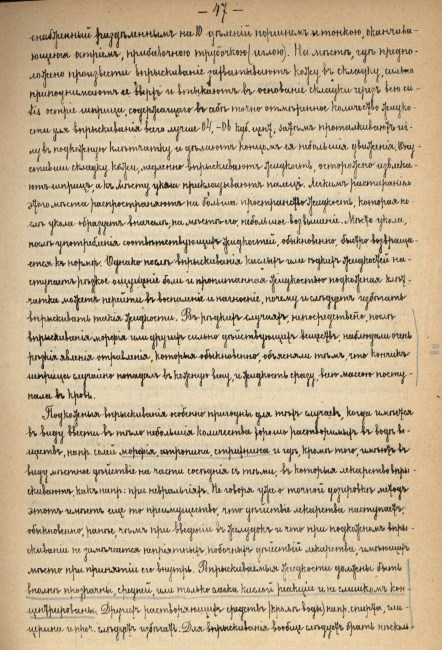 — 47 —
снабженный раздѣленнымъ на 10 дѣленій поршнемъ и тонкою, оканчива-
ющеюся остріемъ, прибавочною трубочкою (иглою). На мѣстѣ, гдѣ предпо-
ложено произвести впрыскиваніе захватываютъ кожу въ складку, сильно
приподнимаютъ ее вверхъ и втыкаютъ въ основаніе складки черезъ всю cu-
tis остріе шприца, содержащаго въ себѣ точно отмѣренное количество жидко-
сти для впрыскиванія всего лучше 0,4-0,6 куб. цент., затѣмъ проталкиваютъ иг-
лу въ подкожную клѣтчатку и дѣлаютъ концомъ ея небольшія движенія. Опу-
стивши складку кожи, медленно впрыскиваютъ жидкость, осторожно извлека-
ютъ шприцъ а къ мѣсту укола прикладываютъ палецъ. Легкимъ растираніемъ
этого мѣста распространяютъ на большее пространство жидкость, которая по-
слѣ укола образуетъ вначалѣ, на мѣстѣ его, небольшое возвышеніе. Мѣсто укола,
послѣ употребленія соотвѣтствующихъ жидкостей, обыкновенно, быстро возвраща-
ется къ нормѣ. Однако послѣ впрыскиванія кислыхъ или ѣдкихъ жидкостей на-
ступаетъ рѣзкое ощущеніе боли и пропитанная жидкостью подкожная клѣт-
чатка можетъ перейти въ воспаленіе и нагноеніе, почему и слѣдуетъ избѣгать
впрыскивать такія жидкости. Въ рѣдкихъ случаяхъ, непосредственно, послѣ
впрыскиванія морфія или другихъ сильно дѣйствующихъ веществъ, наблюдали очень
рѣзкія явленія отравленія, которыя обыкновенно, объясняли тѣмъ, что кончикъ
шприца случайно попадалъ въ кожную вену, и жидкость сразу, всею массою посту-
пала въ кровь.
Подкожныя впрыскиванія особенно пригодны для тѣхъ случаевъ, когда имѣется
въ виду ввести въ тѣло небольшія количества хорошо растворимыхъ въ водѣ ве-
ществъ, напр. солей морфія атропина стрихнина и гдѣ кромѣ того, имѣютъ въ
виду мѣстное дѣйствіе на части сосѣднія съ тѣми, въ которыя лекарство впры-
скиваютъ какъ напр: при невралгіяхъ. Не говоря уже о точной дозировкѣ методъ
этотъ имѣетъ еще то преимущество, что дѣйствіе лекарства наступаетъ,
обыкновенно, ранѣе чѣмъ при введеніи въ желудокъ и что при подкожномъ впры-
скиваніи не замѣчается непріятныхъ побочныхъ дѣйствій лекарства, имѣющихъ
мѣсто при принятіи его внутрь. Впрыскиваемыя жидкости должны быть
вполнѣ прозрачны, средней, или только слабо кислой реакціи и не слишкомъ кон-
центрированы. Другихъ растворяющихъ средствъ (кромѣ воды) напр. спирта, гли-
церина и проч. слѣдуетъ избѣгать. Для впрыскиванія вообще слѣдуетъ брать нѣсколь-